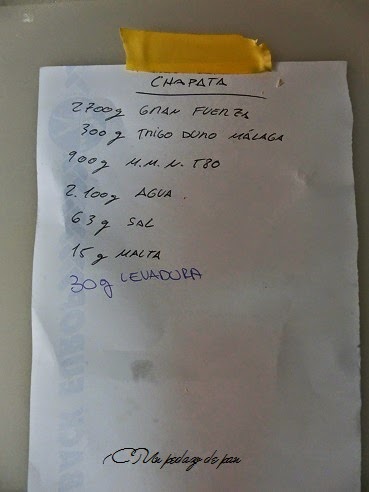 CHAPATA
2700g GRAN FUERZA
300g TRIGO DURO MÁLAGA
900g M.M.N. T80
2.100g AGUA.
63g SAL
15g MALTA
30g LEVADURA
Un pedazo de pan